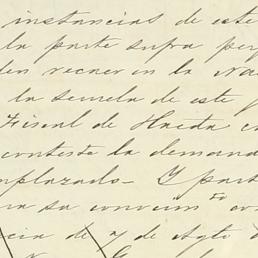 instancias de este
la parte supra per
den recaer en la Na
la semela de este
Fiscal de Hacda en
contesta la demand
mplazado - Y part
ra su convenito con
cia de 7 de Agto